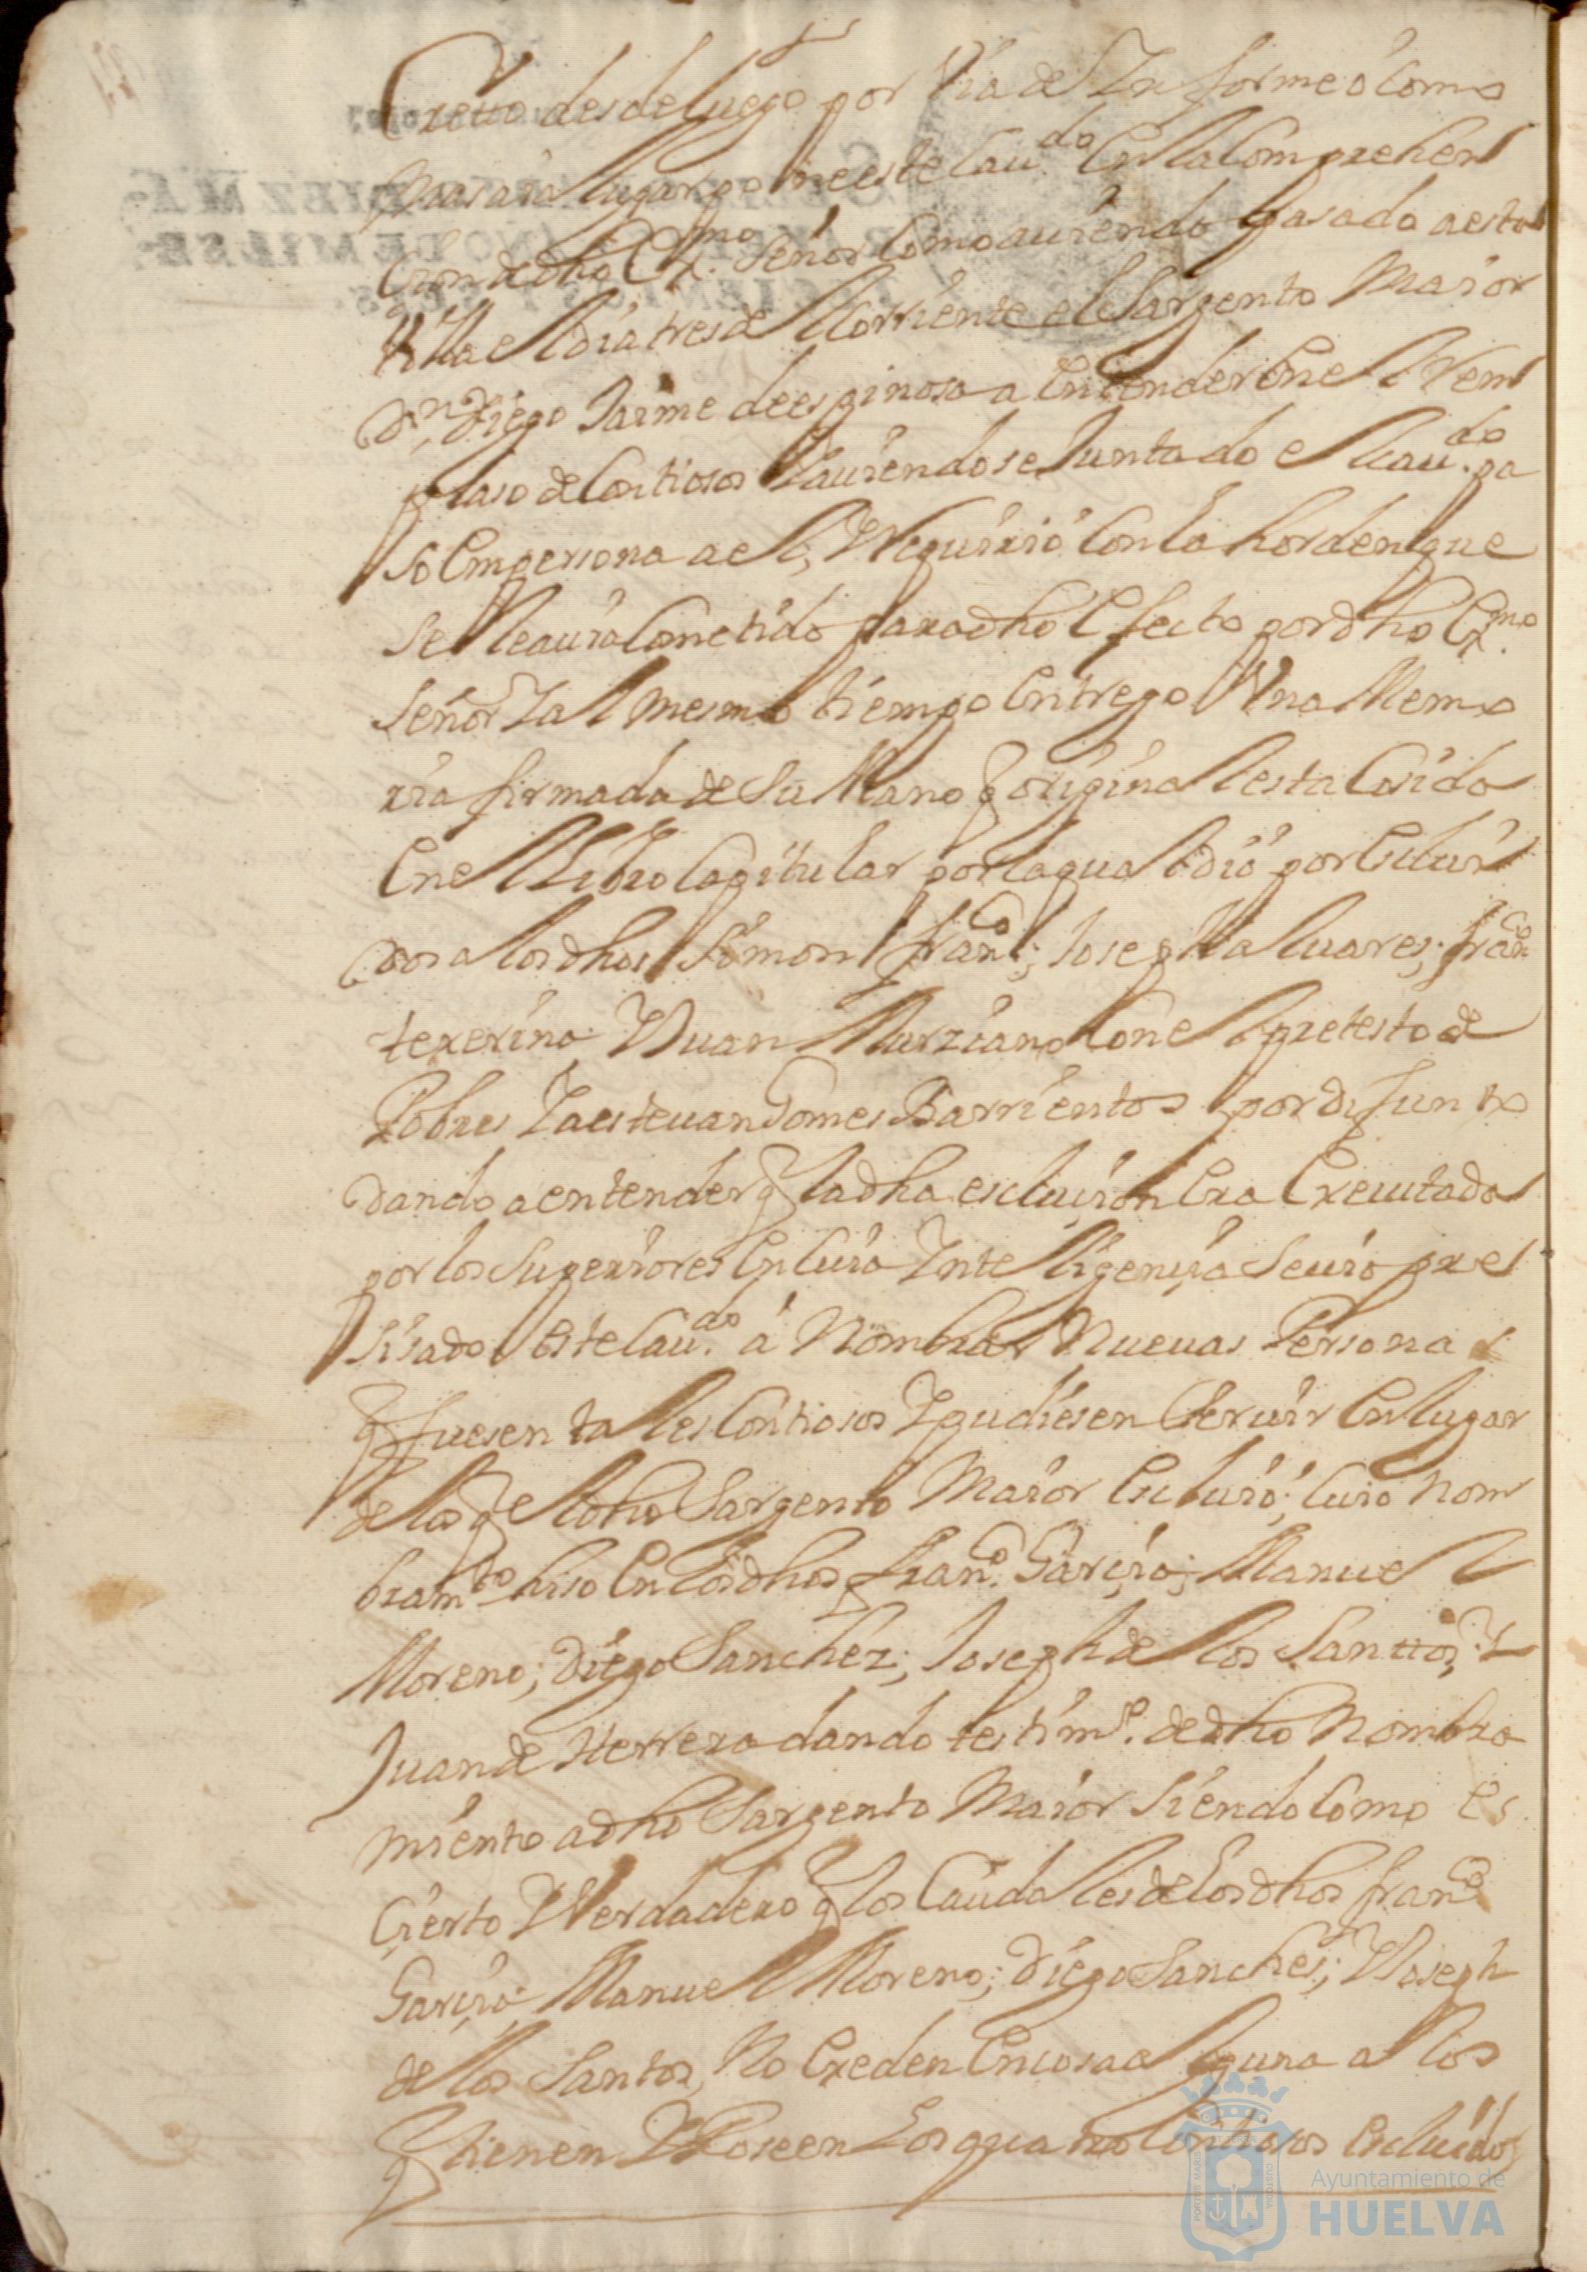 Cretto desde luego por Via de Informe ó como
mas aia lugar pone este Cau.do En la Comprehen
sion de dho Ex.mo Señor Como auiendo pasado a esta
Villa el dia tres del Corriente el Sargento Maior
Dn. Diego Jaime de espinosa a Entender En el Rem
plaso de Contiosos Y auiendose Juntado el Cau.do pa
so En persona a el, Y Requirió Con la horden que
se le auia Cometido para dho Efecto por dho Ex.mo
Señor Y al mesmo tiempo Entrego Vna Memo
ria firmada de Su Mano q original esta Cosida
En el Libro Capitular por la qual dió por Esclui
dos a los dhos Simon fran.co; Joseph Aluares; fran.co
texerino Y Juan Marziano Con el pretesto de
Pobres Y a esteuan Gomes Barrientos por difunto
dando a entender q la dha esclusion Era Executada
por los Superiores En Cuia Inteligencia Se uio pre
sisado este Cau.do á Nombrar Nueuas Personas
q fuesen tales Contiosos Y pudiesen Seruir En lugar
de los q el dho Sargento Maior Escluió; Cuio Nom
bram.to hiso En los dhos fran.co Garcia; Manuel
Moreno; Diego Sanchez; Joseph de los Santtos; Y
Juan de Herrera dando testim.o de dho Nombra
miento a dho Sargento Maior Siendo Como es
Cierto Y Verdadero q los Caudales de los dhos fran.co
Garcia; Manuel Moreno; Diego Sanches; Y Joseph
de los Santos, No Exeden En cosa alguna a los
q tienen Y Poseen Los quatro Contiosos Escluidos
Ayuntamiento de
HUELVA